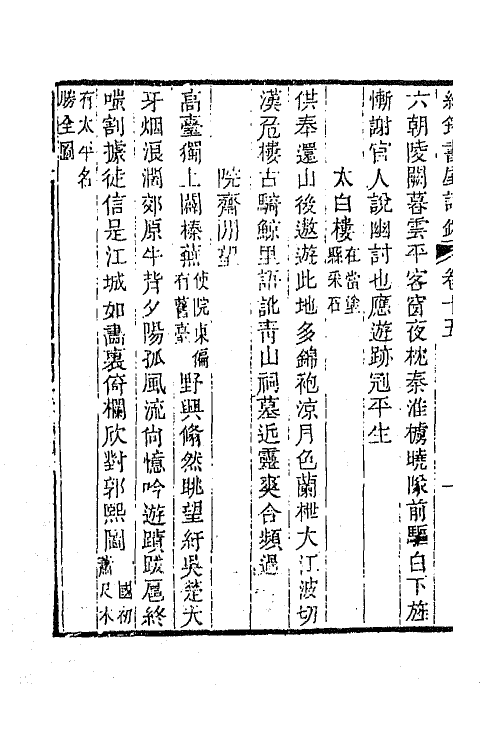 書屋詩鈔 卷十五 一
六朝陵闕暮雲平客窗夜枕秦淮櫓曉隊前驅白下旌
慚謝官人說幽討也應遊跡冠平生
太白樓在當塗縣采石
供奉還山後遨遊此地多錦袍涼月色蘭枻大江波切
漢危樓古騎鯨里語訛靑山祠墓近靈爽合頻過
院齋閒望
高臺獨上闢榛蕪使院東偏有舊臺野興翛然眺望紆吳楚犬
牙烟浪濶郊原牛背夕陽孤風流尙憶吟遊躋跋扈終
嗤割據徒信是江城如畵裏倚欄欣對郭熙圖國初蕭尺木
有太平名勝全圖